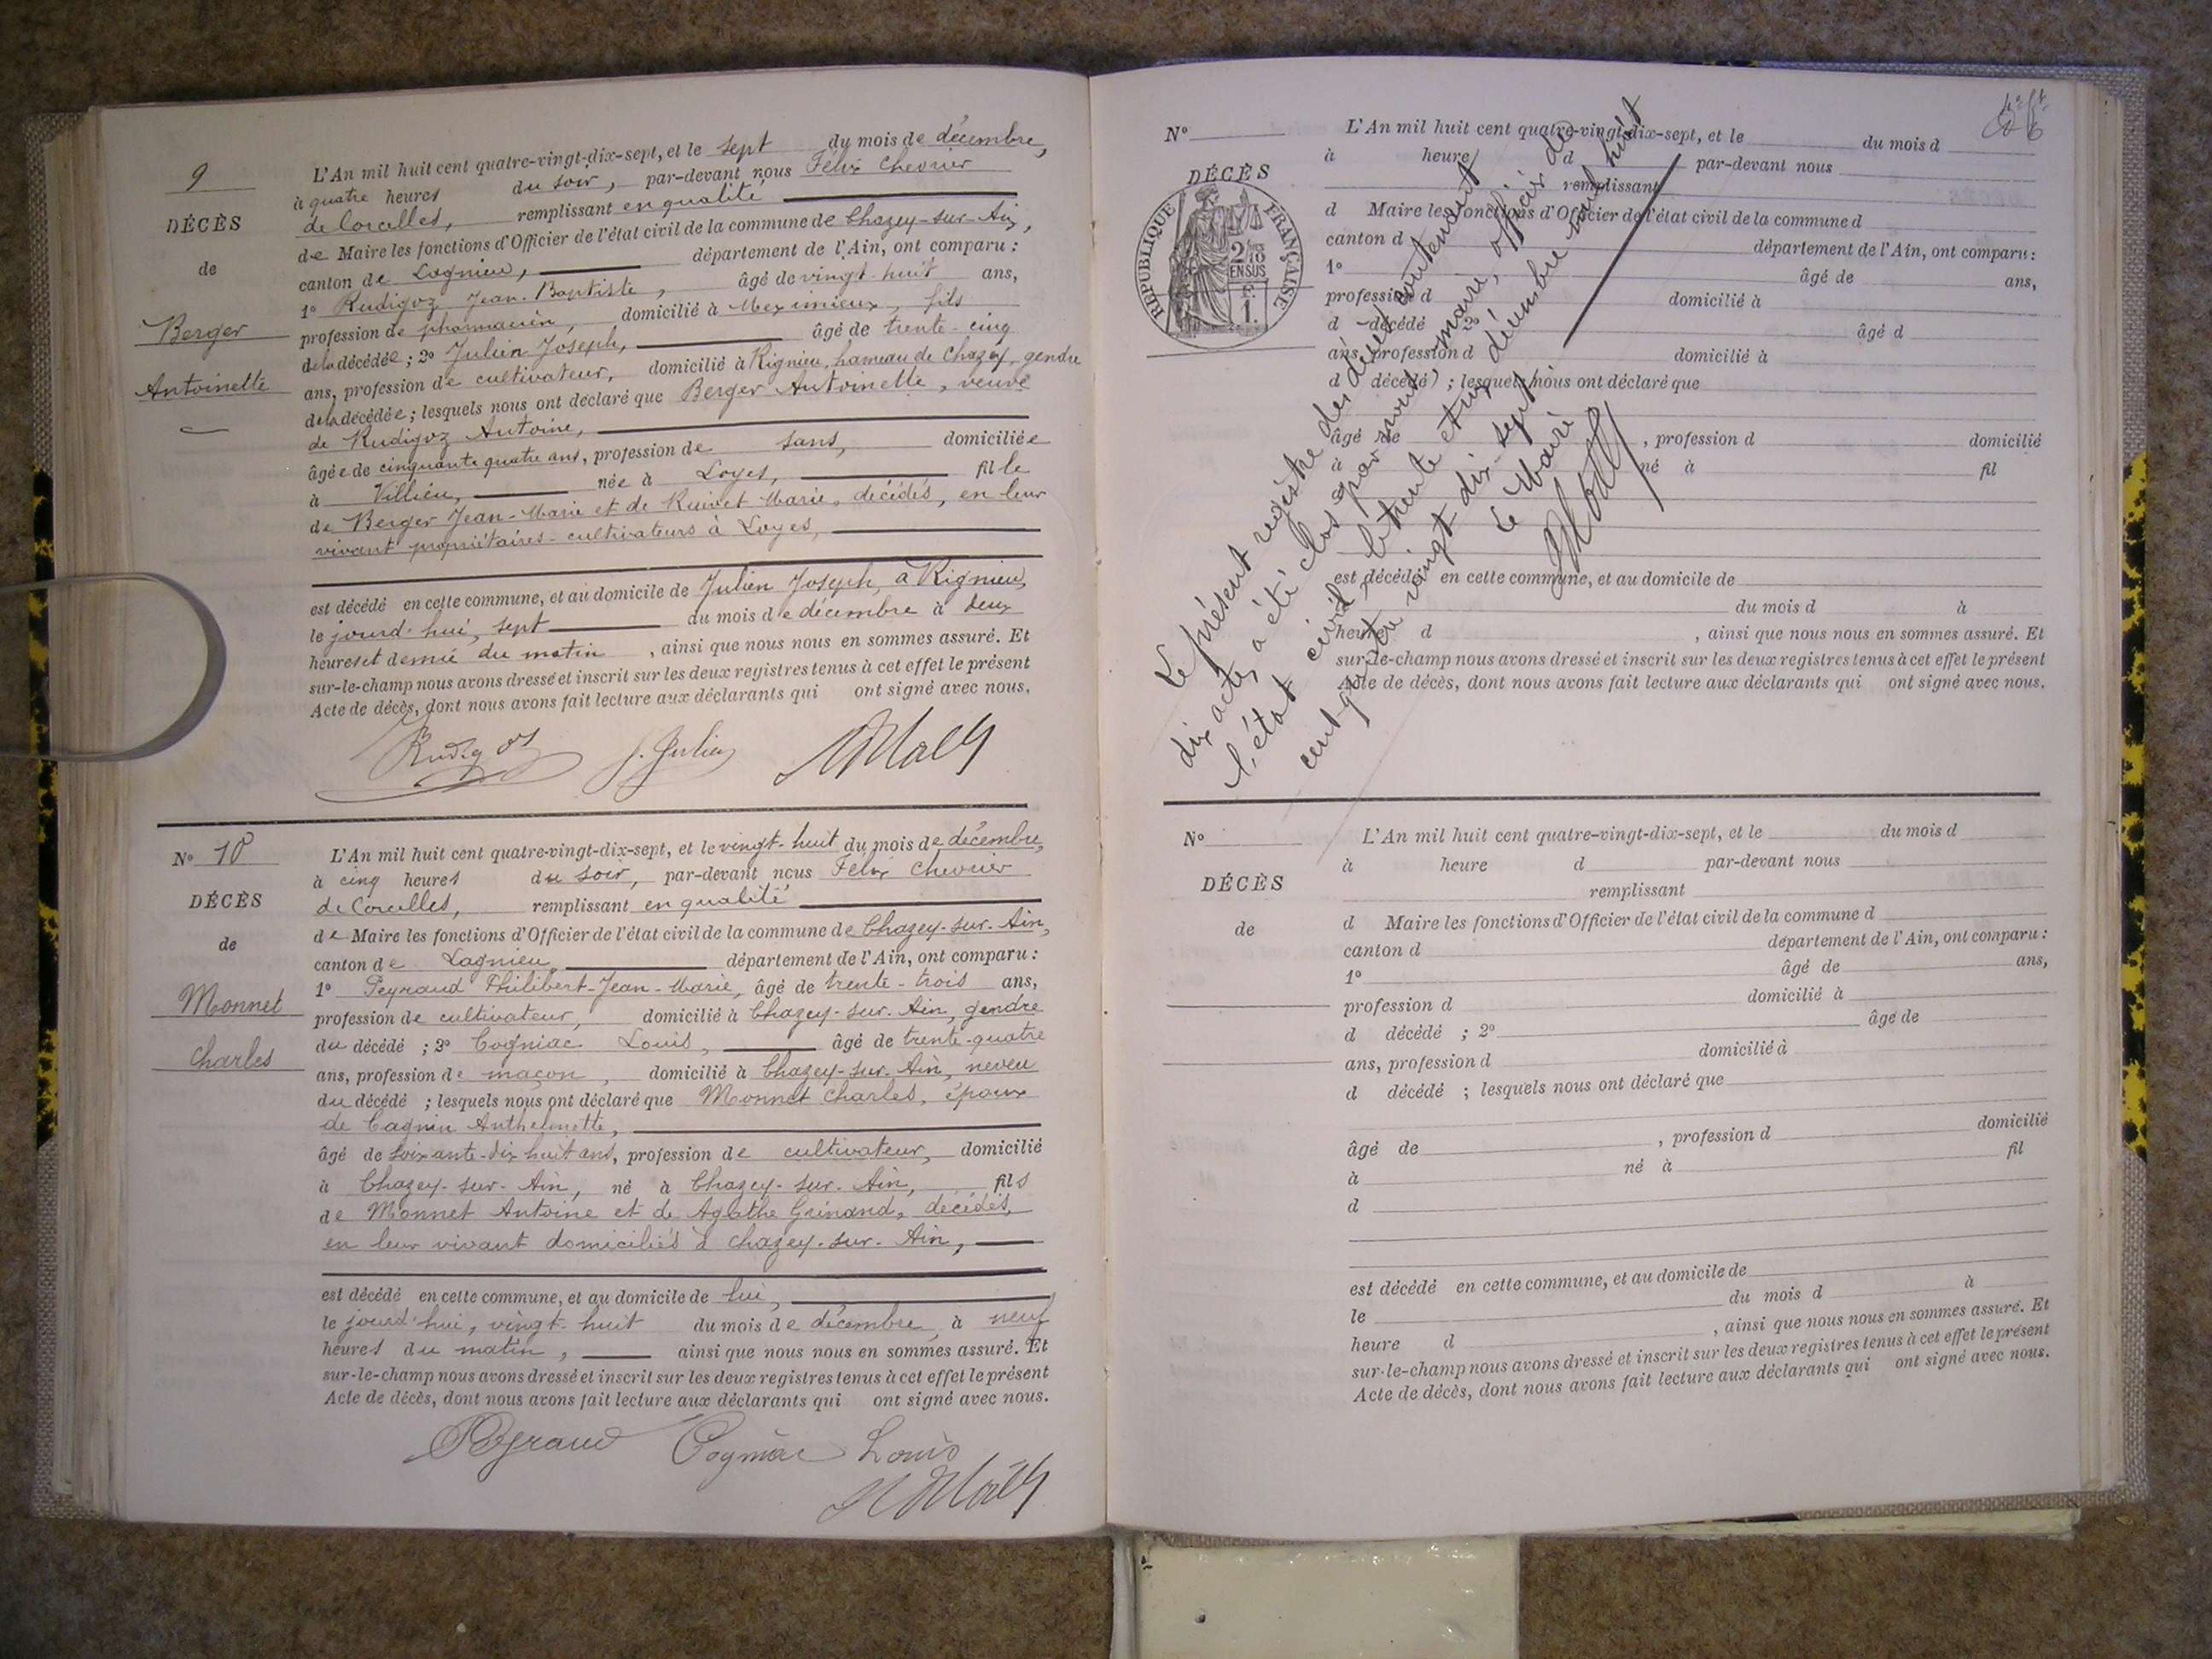 9
DÉCÈS
de
Berger
Antoinette
L'An mil huit cent quatre-vingt-dix-sept, et le sept du mois de décembre,
à quatre heures du soir, par-devant nous Félix Chevrier
de Corcelles, remplissant en qualité
de Maire les fonctions d'Officier de l'état civil de la commune de Chazey-sur-Ain,
canton de Lagnieu, département de l'Ain, ont comparu :
1º Rudigoz Jean-Baptiste, âgé de vingt-huit ans,
profession de pharmacien, domicilié à Meximieux, fils
de la décédée ; 2º Julien Joseph, âgé de trente-cinq
ans, profession de cultivateur, domicilié à Rignieu, hameau de Chazey, gendre
de la décédée ; lesquels nous ont déclaré que Berger Antoinette, veuve
de Rudigoz Antoine,
âgée de cinquante quatre ans, profession de sans, domiciliée
à Villieu, née à Loyes, fille
de Berger Jean-Marie et de Ruivet Marie, décédés, en leur
vivant propriétaires-cultivateurs à Loyes,
est décédé en cette commune, et au domicile de Julien Joseph, à Rignieu,
le jourd'hui, sept du mois de décembre à deux
heures et demie du matin, ainsi que nous nous en sommes assuré. Et
sur-le-champ nous avons dressé et inscrit sur les deux registres tenus à cet effet le présent
Acte de décès, dont nous avons fait lecture aux déclarants qui ont signé avec nous.
Rudigoz J. Julien
Nº 10
DÉCÈS
de
Monnet
Charles
L'An mil huit cent quatre-vingt-dix-sept, et le vingt-huit du mois de décembre,
à cinq heures du soir, par-devant nous Félix Chevrier
de Corcelles, remplissant en qualité
de Maire les fonctions d'Officier de l'état civil de la commune de Chazey-sur-Ain,
canton de Lagnieu, département de l'Ain, ont comparu :
1º Peyraud Philibert-Jean-Marie, âgé de trente-trois ans,
profession de cultivateur, domicilié à Chazey-sur-Ain, gendre
du décédé ; 2º Cogniac Louis, âgé de trente-quatre
ans, profession de maçon, domicilié à Chazey-sur-Ain, neveu
du décédé ; lesquels nous ont déclaré que Monnet Charles, époux
de Cagnin Anthelmette,
âgé de soixante-dix huit ans, profession de cultivateur, domicilié
à Chazey-sur-Ain, né à Chazey-sur-Ain, fils
de Monnet Antoine et de Agathe Grinand, décédés,
en leur vivant domiciliés à Chazey-sur-Ain,
est décédé en cette commune, et au domicile de lui,
le jourd'hui, vingt-huit du mois de décembre, à neuf
heures du matin, ainsi que nous nous en sommes assuré. Et
sur-le-champ nous avons dressé et inscrit sur les deux registres tenus à cet effet le présent
Acte de décès, dont nous avons fait lecture aux déclarants qui ont signé avec nous.
Peyraud Cogniac Louis
Nº
DÉCÈS
RÉPUBLIQUE FRANÇAISE
2/10
EN SUS
1.
L'An mil huit cent quatre-vingt-dix-sept, et le du mois d
à heure d par-devant nous
remplissant
d Maire les fonctions d'Officier de l'état civil de la commune d
canton d département de l'Ain, ont comparu :
1º âgé de ans,
profession d domicilié à
d décédé 2º âgé d
ans, profession d domicilié à
d décédé ; lesquels nous ont déclaré que
âgé de , profession d domicilié
à né à fil
est décédé en cette commune, et au domicile de
du mois d à
heure d , ainsi que nous nous en sommes assuré. Et
sur-le-champ nous avons dressé et inscrit sur les deux registres tenus à cet effet le présent
Acte de décès, dont nous avons fait lecture aux déclarants qui ont signé avec nous.
Le présent registre des décès contenant
dix actes, a été clos par nous, maire, officier de
l'état civil, le trente et un décembre mil huit
cent quatre vingt dix-sept.
Le Maire
Nº
DÉCÈS
de
L'An mil huit cent quatre-vingt-dix-sept, et le du mois d
à heure d par-devant nous
remplissant
d Maire les fonctions d'Officier de l'état civil de la commune d
canton d département de l'Ain, ont comparu :
1º âgé de ans,
profession d domicilié à
d décédé ; 2º âgé de
ans, profession d domicilié à
d décédé ; lesquels nous ont déclaré que
âgé de , profession d domicilié
à né à fil
d
est décédé en cette commune, et au domicile de
le du mois d à
heure d , ainsi que nous nous en sommes assuré. Et
sur-le-champ nous avons dressé et inscrit sur les deux registres tenus à cet effet le présent
Acte de décès, dont nous avons fait lecture aux déclarants qui ont signé avec nous.